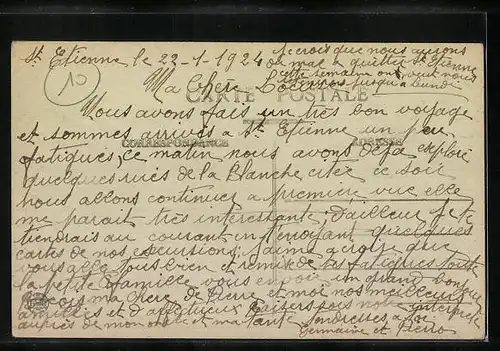 St Etienne le 22-1-1924
je crois que nous aurons
du mal a quitter St Etienne
cette semaine on veut nous
jusqu'a lundi
Ma Chère
CARTE POSTALE
Nous avons fais un très bon voyage
et sommes arrivés a St Etienne un peu
CORRESPONDANCE
ADRESSE
fatigués, ce matin nous avons déja exploré
quelques rues de la Blanche citée ce soir
nous allons continuer a première vue elle
me parait très interessante, d'ailleur je te
tiendrais au courant en t'envoyant quelques
cartes de nos excursions, j'aime a croire que
vous allé tous bien et remis de vos fatigues toute
la petite famille vous envoie un grand bonjour
ma chère de Pierre et moi nos meilleurs
amitiés et d'affectueux baisers sois notre interprète
auprès de mon oncle et ma tante
Germaine et Pierre